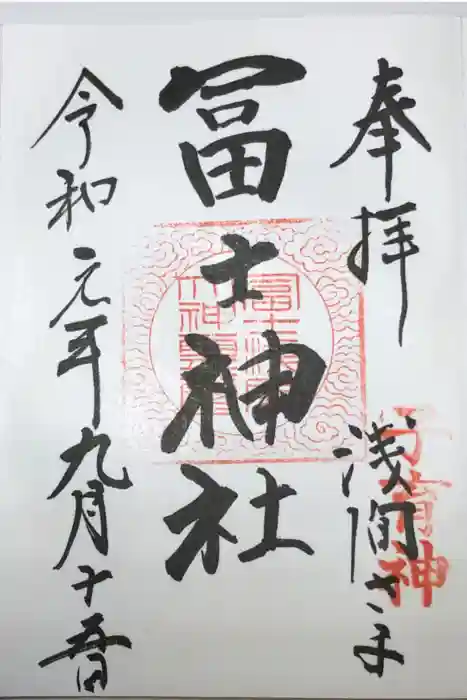 奉拝
浅間さま
子育神
冨士神社
令和元年九月十五日